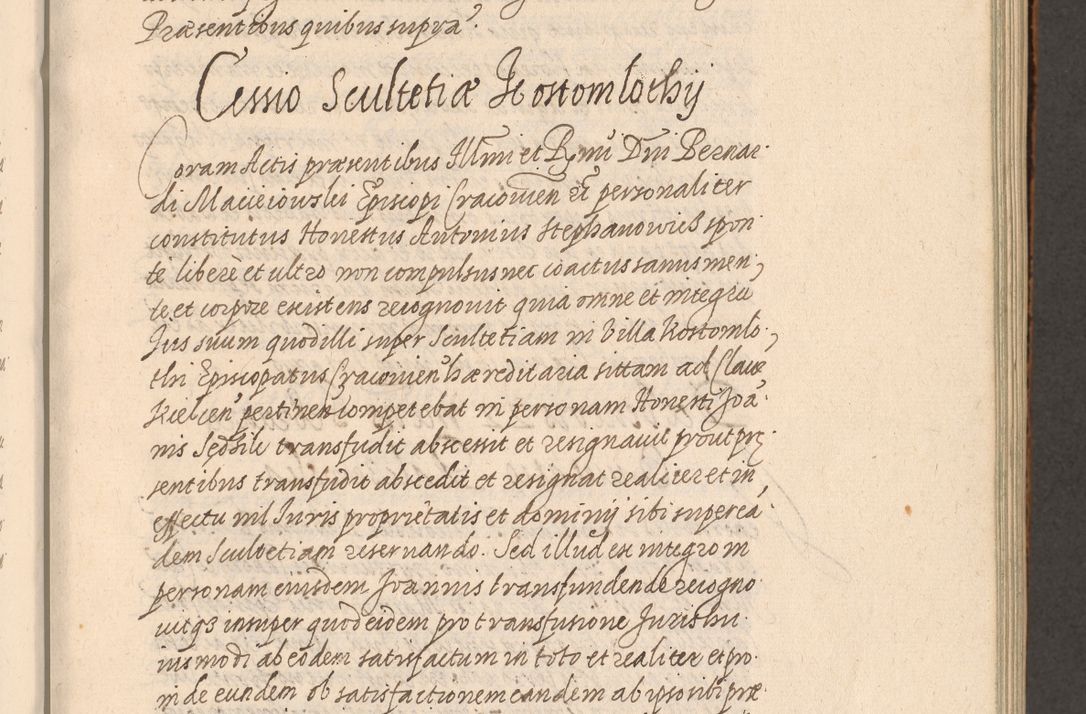 Præsentibus quibus supra.
Cessio Scultetiæ Kostomlothÿ
Coram Actis præsentibus Illmi et Rmi Dni Bernar
di Macieiowski Episcopi Cracovien etc personaliter
constitutus Honestus Antonius Stephanowicz spon
te liberè et ultro non compulsus nec coactus sanus men
te et corpore existens recognovit quia omne et integrũ
Jus suum quod illi super Scultetiam in Villa Kostomlo
thi Episcopatus Cracovien hæreditaria sittam ad Clave
Kielcen pertinen competebat in personam Honesti Joã
nis Sedzik transfudit abscessit et resignavit prout præ
sentibus transfudit abscedit et resignat realiter et in
effectu nil Iuris proprietatis et dominÿ sibi super ea
dem Scultetiam reservando. Sed illud ex integro in
personam eiusdem Joannis transfundende recogno
vitq3 insuper quod eidem pro transfusione Juris hu
iusmodi ab eodem satisfactum in toto et realiter et pro
in de eundem ob satisfactionem eandem ab ipso sibi præ